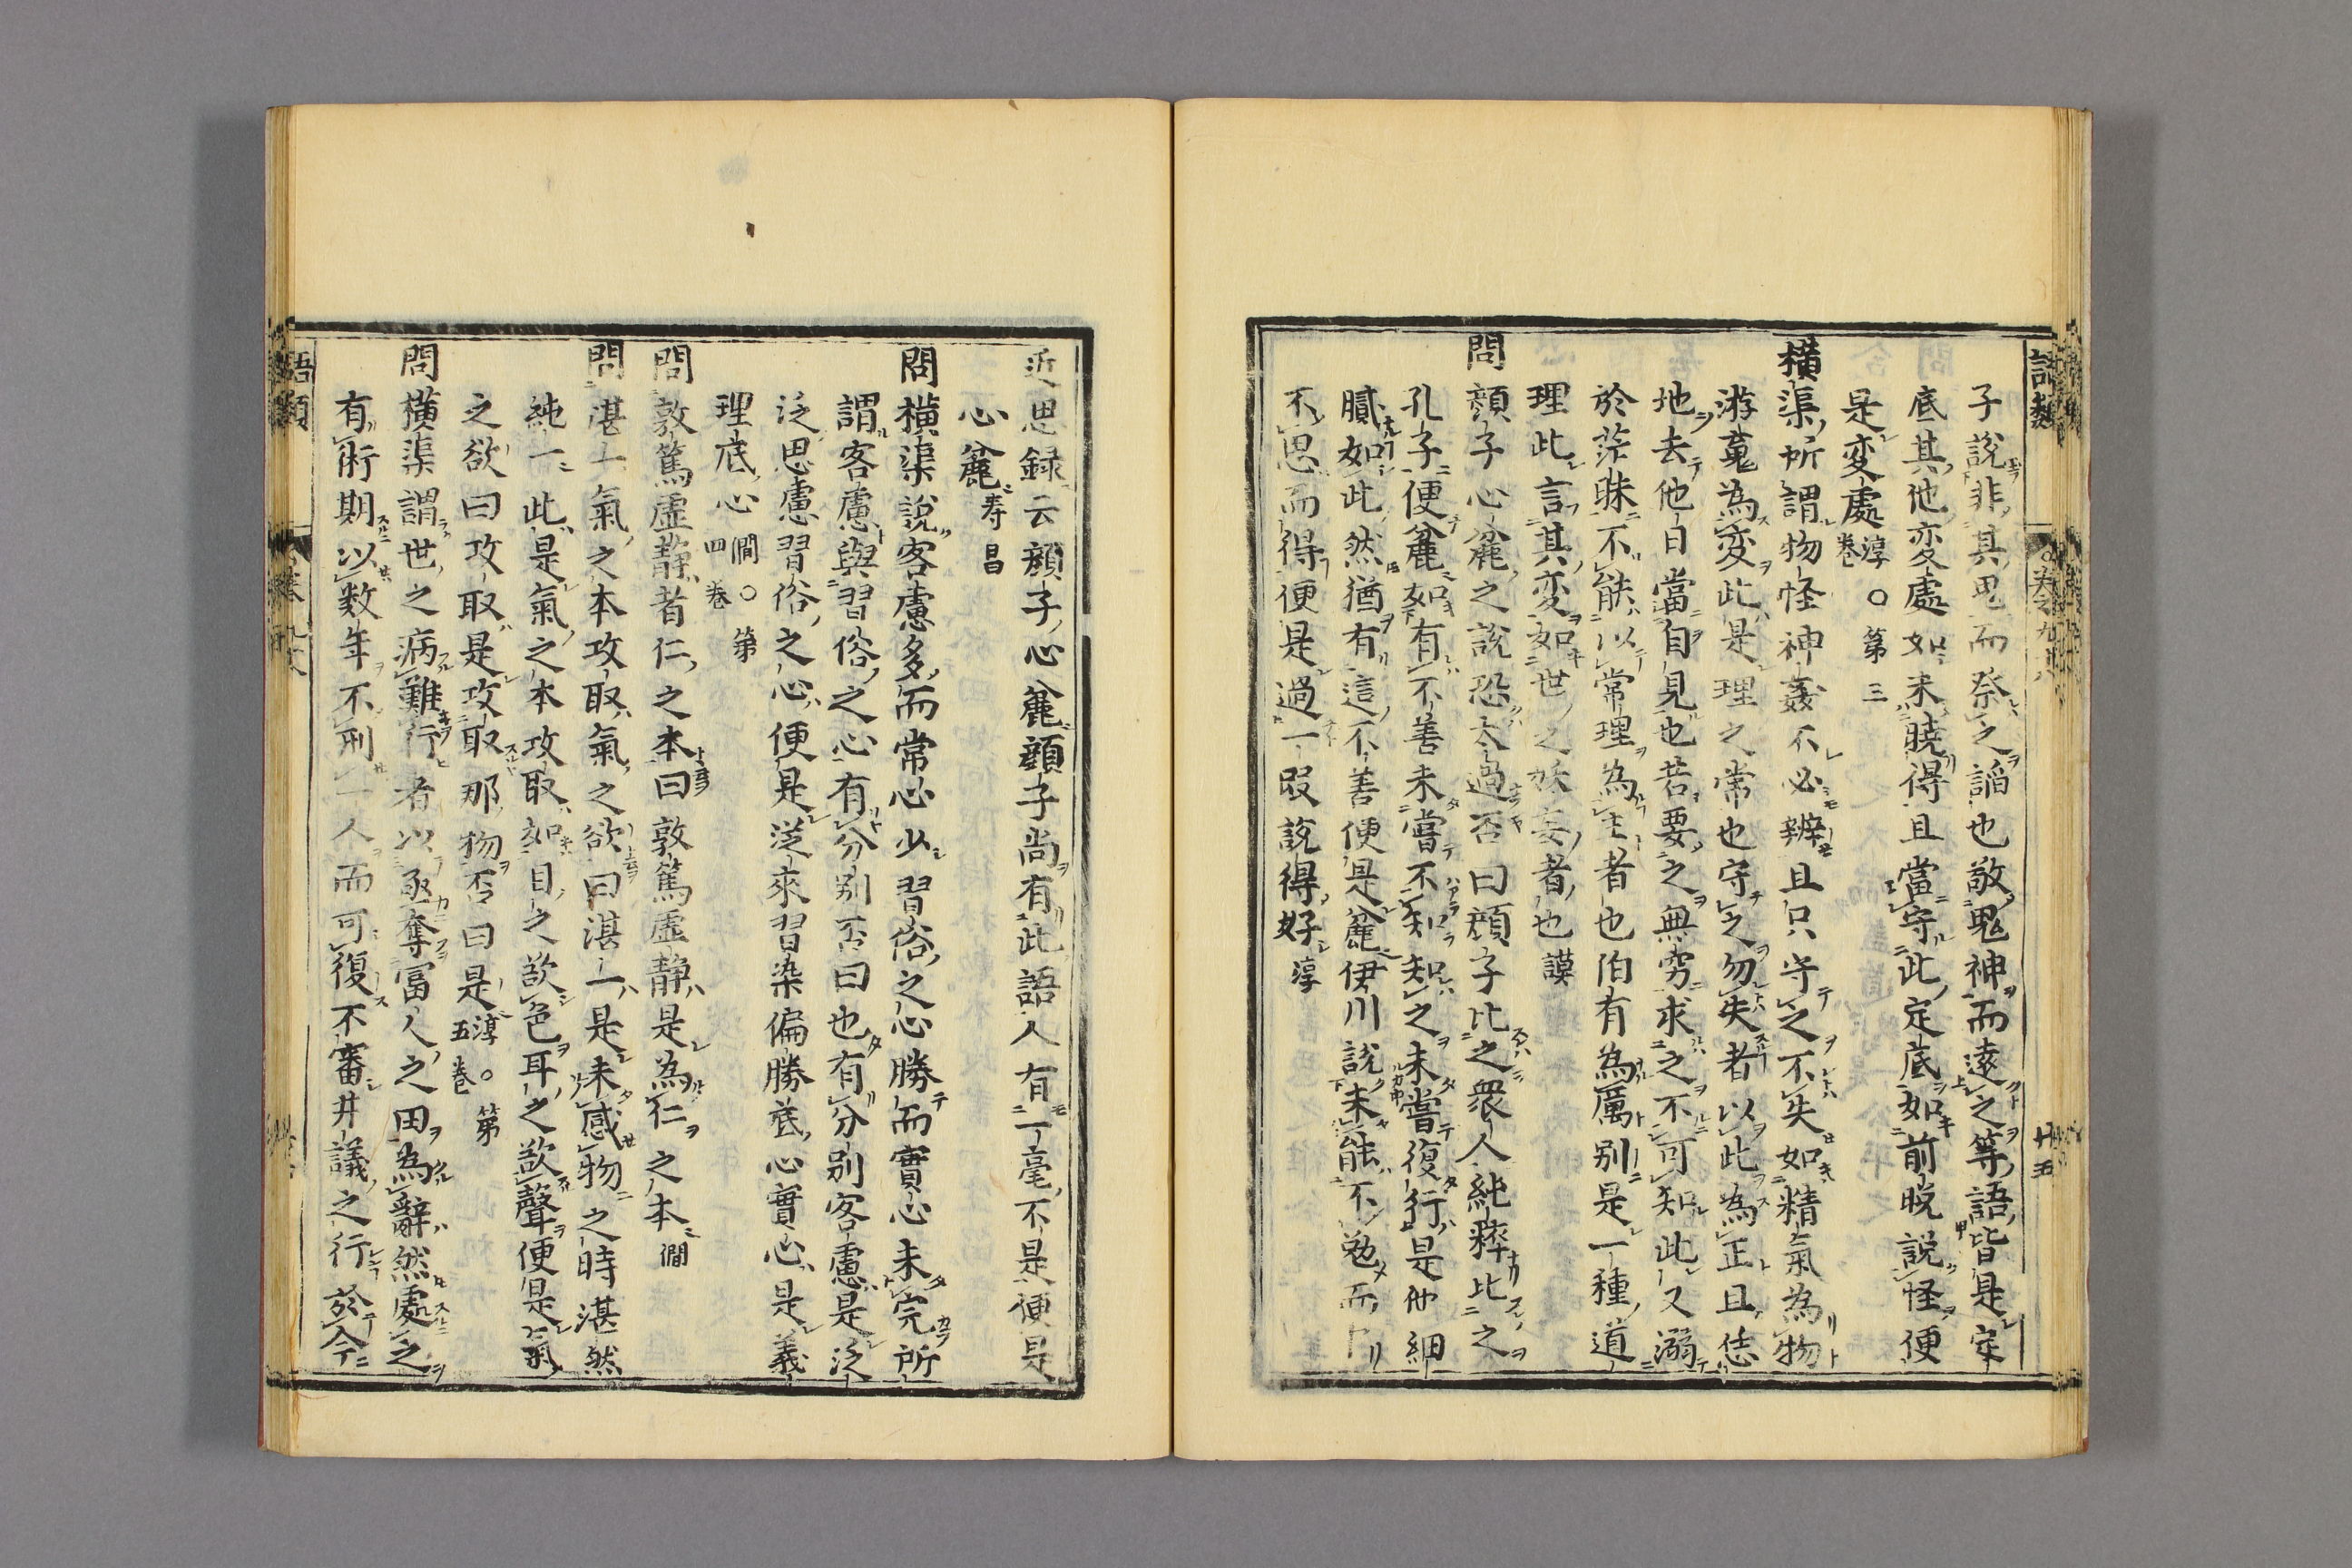 語類 卷之九十八 廿五
子說非其鬼而祭之謟也敬鬼神而遠之等語皆是定
底其他変處如未曉得且當守此定底如前晚說怪便
是変處淳○第三卷
橫渠所謂物怪神姦不必辨且只守之不失如精氣為物
游䰟為変此是理之常也守之勿失者以此為正且恁
地去他日當自見也若要之無窮求之不可知此又溺
於茫昧不能以常理為主者也伯有為厲别是一種道
理此言其変如世之妖妄者也謨
問顏子心麄之說恐太過否曰顏子比之衆人純粹比之
孔子便麄如有不善未嘗不知知之未嘗復行是他細
膩如此然猶有這不善便是麄伊川說未能不勉而中
不思而得便是過一段說得好淳
近思録云顏子心麄顏子尚有此語人有一毫不是便是
心麄壽昌
問橫渠說客慮多而常心少習俗之心勝而實心未完所
謂客慮與習俗之心有分别否曰也有分别客慮是泛
泛思慮習俗之心便是從來習染偏勝底心實心是義
理底心僩○第四卷
問敦篤虛静者仁之本曰敦篤虛静是為仁之本僩
問湛一氣之本攻取氣之欲曰湛一是未感物之時湛然
純一此是氣之本攻取如目之欲色耳之欲聲便是氣
之欲曰攻取是攻取那物否曰是淳○第五卷
問橫渠謂世之病難行者以亟奪富人之田為辭然處之
有術期以数年不刑一人而可復不審井議之行於今
語類 卷之九十八